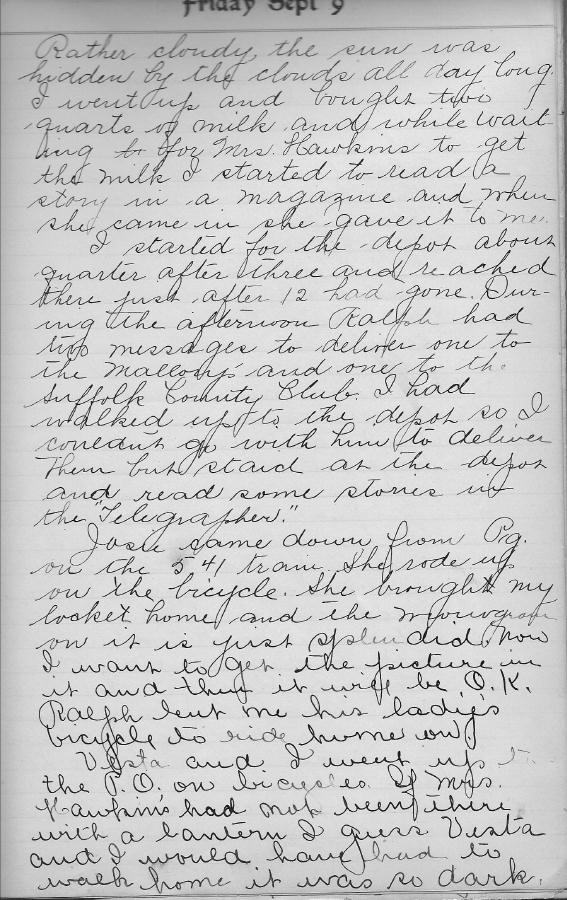 Friday Sept 9
Rather cloudy, the sun was
hidden by the clouds all day long.
I went up and bought two
quarts of milk and while wait-
ing for Mrs. Hawkins to get
the milk I started to read a
story in a magazine and when
she came in she gave it to me.
I started for the depot about
quarter after three and reached
there just after 12 had gone. Dur-
ing the afternoon Ralph had
two messages to deliver one to
the Mallorys' and one to the
Suffolk County Club. I had
walked up to the depot so I
couldnt go with him to deliver
them but staid at the depot
and read some stories in
the "Telegrapher."
Josie came down from Pg.
on the 5 41 train. She rode up
on the bicycle. She brought my
locket home and the monogram
on it is just splendid. Now
I want to get the picture in
it and then it will be O.K.
Ralph lent me his ladys
bicycle to ride home on.
Vesta and I went up to
the P.O. on bicycles. If Mrs.
Hawkins had not been there
with a lantern I guess Vesta
and I would have had to
walk home it was so dark.